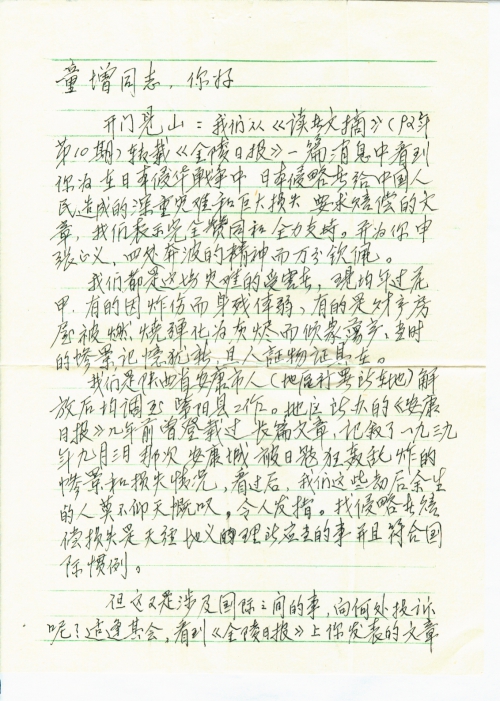 童增同志，你好
开门见山：我们从《读者文摘》（92年
第10期）转载《金陵日报》一篇消息中看到
你为在日本侵华战争中日本侵略者给中国人
民造成的深重灾难和巨大损失要求赔偿的文
章，我们表示完全赞同和全力支持。并为你申
张正义，四处奔波的精神而万分钦佩。
我们都是这场灾难的受害者，现均年过花
甲，有的因炸伤而身残体弱，有的是财产房
屋被燃烧弹化为灰烬而倾家荡产，当时
的惨景记忆犹新，且人证物证具在。
我们是陕西省安康市人（地区行署所在地）解
放后均调至紫阳县工作。地区所办的《安康
日报》几年前曾登载过长篇文章，记叙了一九三九
年九月三日那次安康城被日
狂轰乱炸的
惨景和损失情况，看过后，我们这些劫后余生
的人莫不仰天慨叹，令人发指。找侵略者赔
偿损失是天经地义的理所应当的事并且符合国
际惯例。
但这又是涉及国际之间的事，向何处投诉
呢？适逢其会，看到《金陵日报》上你发表的文章